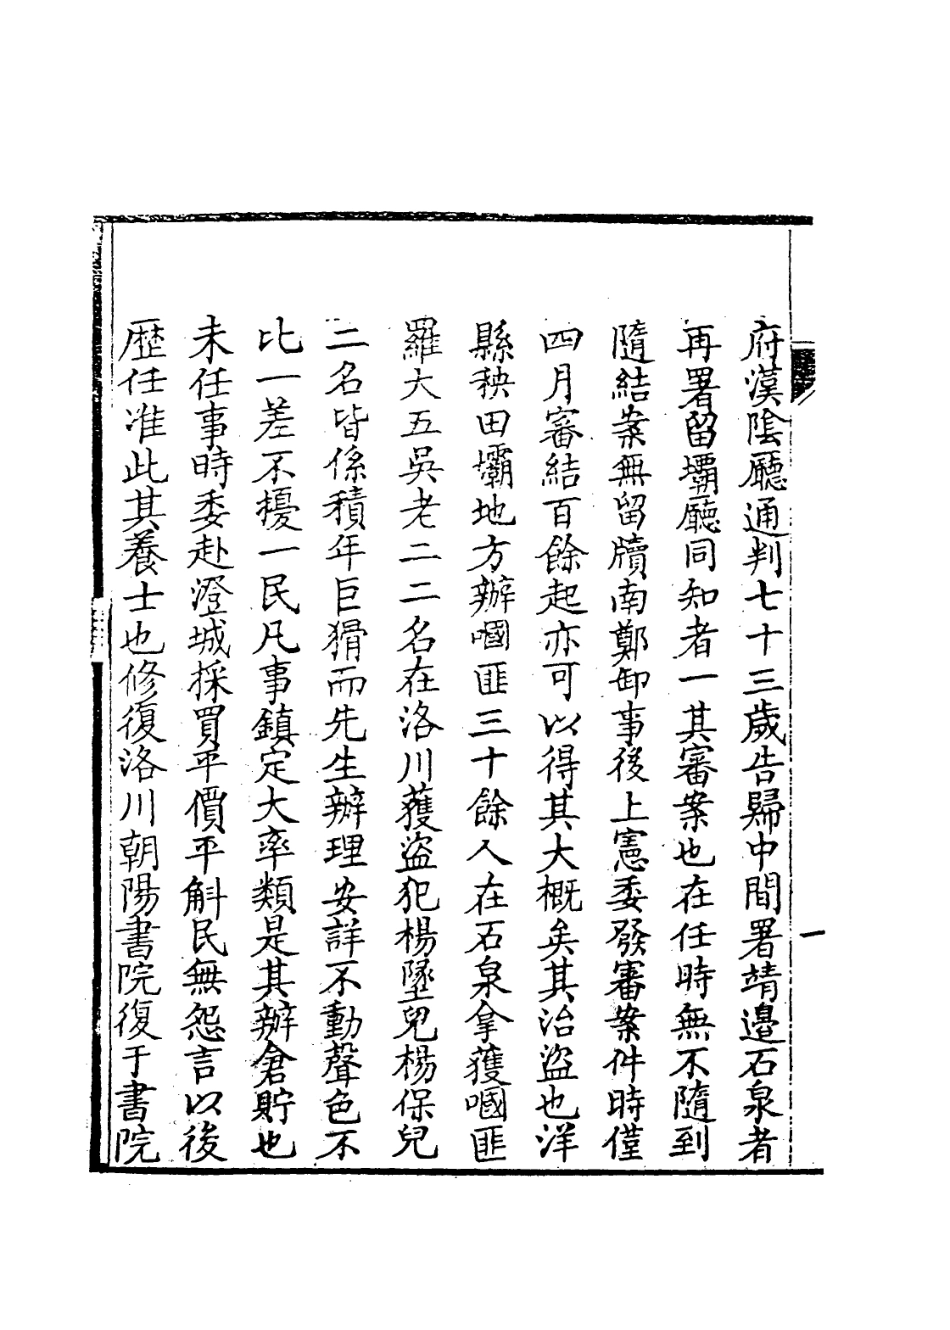 府漢陰廳通判七十三歲告歸中間署靖邉石泉者
再署留壩廳同知者一其審案也在任時無不隨到
隨結案無留牘南鄭卸事後上憲委發審案件時僅
四月審結百餘起亦可以得其大概矣其治盜也洋
縣秧田壩地方辦嘓匪三十餘人在石泉拿獲嘓匪
羅大五吳老二二名在洛川獲盜犯楊墜兒楊保兒
二名皆係積年巨猾而先生辦理安詳不動聲色不
比一差不擾一民凡事鎮定大率類是其辦倉貯也
未任事時委赴澄城採買平價平斛民無怨言以後
歴任准此其養士也修復洛川朝陽書院復于書院
一